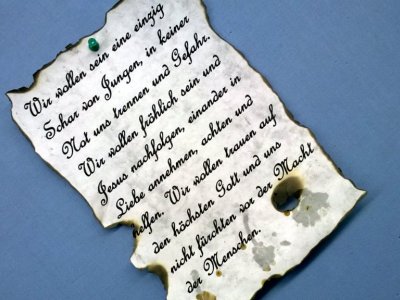 Wir wollen sein eine einzig
Schar von Jungen, in keiner
Not uns trennen und Gefahr.
Wir wollen fröhlich sein und
Jesus nachfolgen, einander in
Liebe annehmen, achten und
helfen. Wir wollen trauen auf
den höchsten Gott und uns
nicht fürchten vor der Macht
der Menschen.